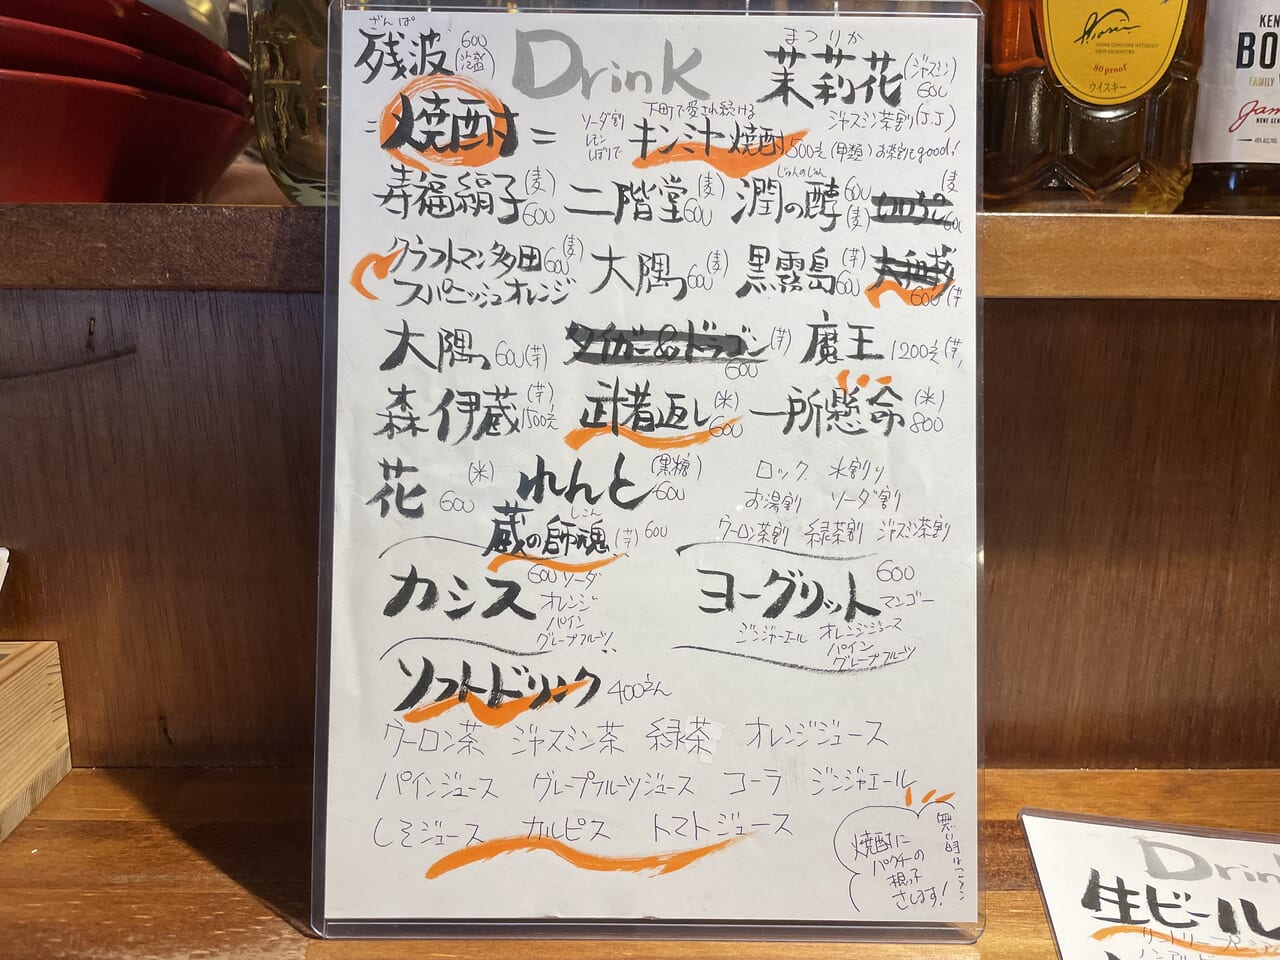 ざんぱ
残波 600 (泡盛)
Drink
まつりか
茉莉花 (ジャスミン) 600
ジャスミン茶割(J.J)
=焼酎=
ソーダ割 レモンしぼりで
下町で愛され続ける
キンミヤ焼酎 500えん (甲類) お茶割でgood!
寿福絹子 (麦) 600 二階堂 (麦) 600 じゅんのじゅん 潤の醇 600 (麦) (麦) 600
クラフトマン多田 600 (麦) 大隅 600 (麦) 黒霧島 (芋) 600 600 (芋
スパニッシュオレンジ
大隅 600 (芋) タイガー&ドラゴン (芋) 600 魔王 1200えん (芋)
森伊蔵 (芋) 1500えん 武者返し (米) 600 一所懸命 (米) 800
花 (米) 600 れんと (黒糖) 600
しこん
蔵の師魂 (芋) 600
ロック 水割り
お湯割 ソーダ割
ウーロン茶割 緑茶割 ジャスミン茶割
カシス 600 ソーダ
オレンジ
パイン
グレープフルーツ
ヨーグリット 600
マンゴー
ジンジャーエール オレンジジュース
パイン
グレープフルーツ
ソフトドリンク 400えん
ウーロン茶 ジャスミン茶 緑茶 オレンジジュース
パインジュース グレープフルーツジュース コーラ ジンジャエール
しそジュース カルピス トマトジュース
焼酎に
パクチの
根っ子
さします!
無い時は
Drin
生ビール
KEN
BO
FAMILY
Jam
NONE GENUINE WITHOUT
THIS SIGNATURE
80 proof
ウイスキー